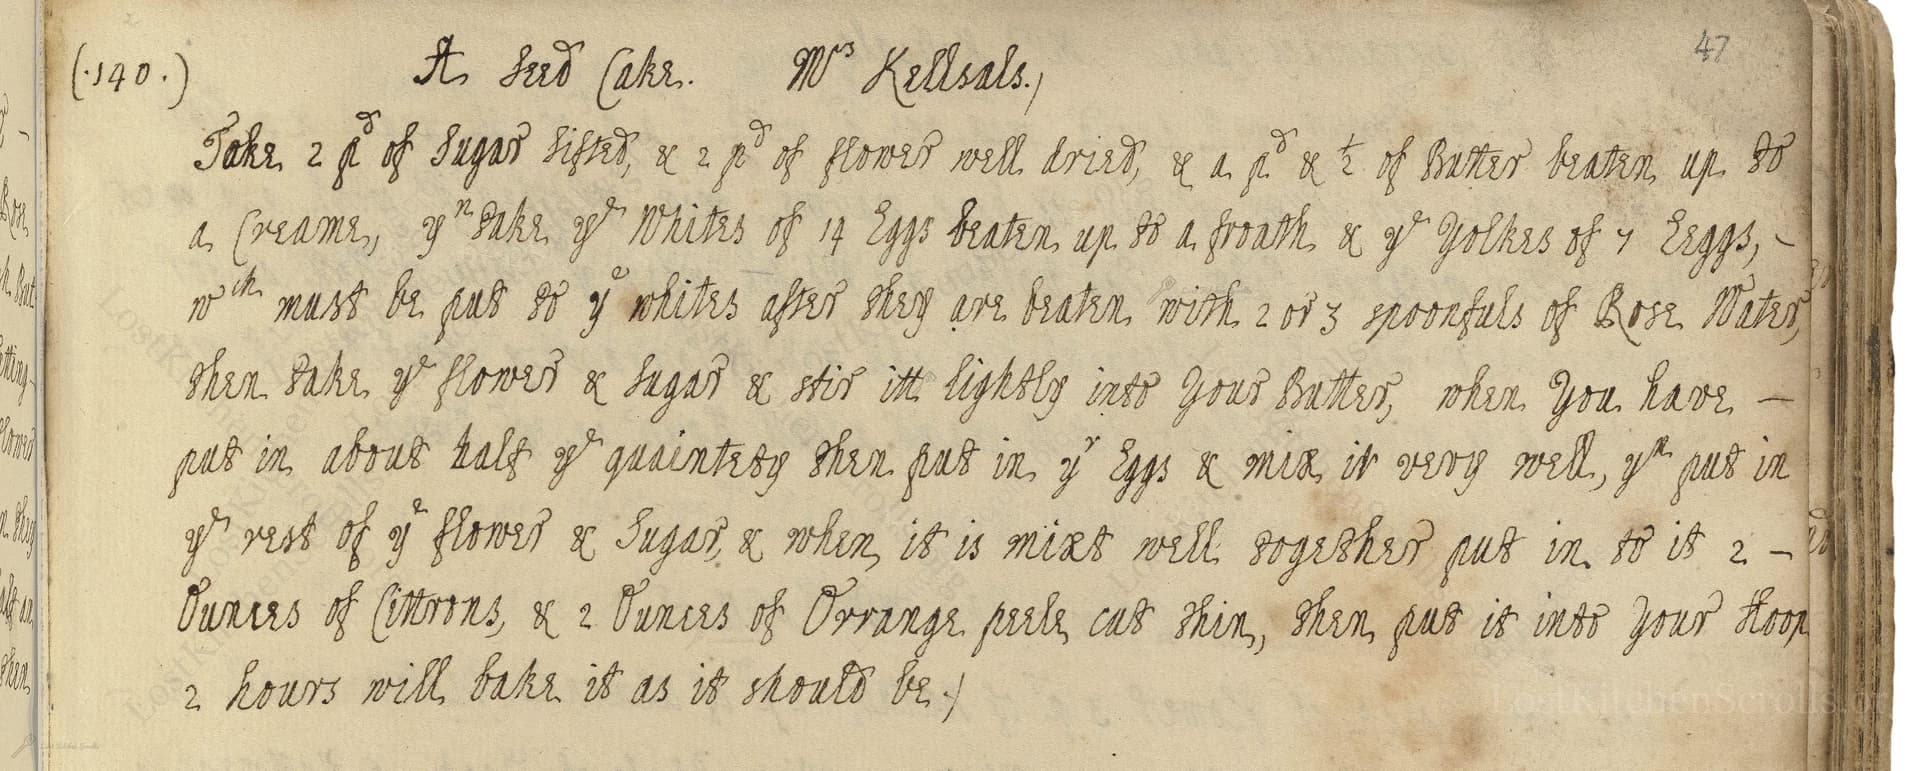 47
(.140.) A Seed Cake. Mrs Kellsals./
Take 2 pd of Sugar sifted, & 2 pd of flower well dried, & a pd & ½ of Butter beaten up to
a Creame, yn take ye Whites of 14 Eggs beaten up to a froath & ye Yolkes of 7 Eeggs, –
wch must be put to ye whites after they are beaten with 2 or 3 spoonfuls of Rose Water,
then take ye flower & Sugar & stir itt lightly into Your Butter, when You have –
put in about half ye quaintety then put in yr Eggs & mix it very well, yn put in
ye rest of ye flower & Sugar, & when it is mixt well together put in to it 2 –
Ounces of Cittrons, & 2 Ounces of Orrange peele cut thin, then put it into Your Hoop
2 hours will bake it as it should be./
LostKitchenScrolls.or